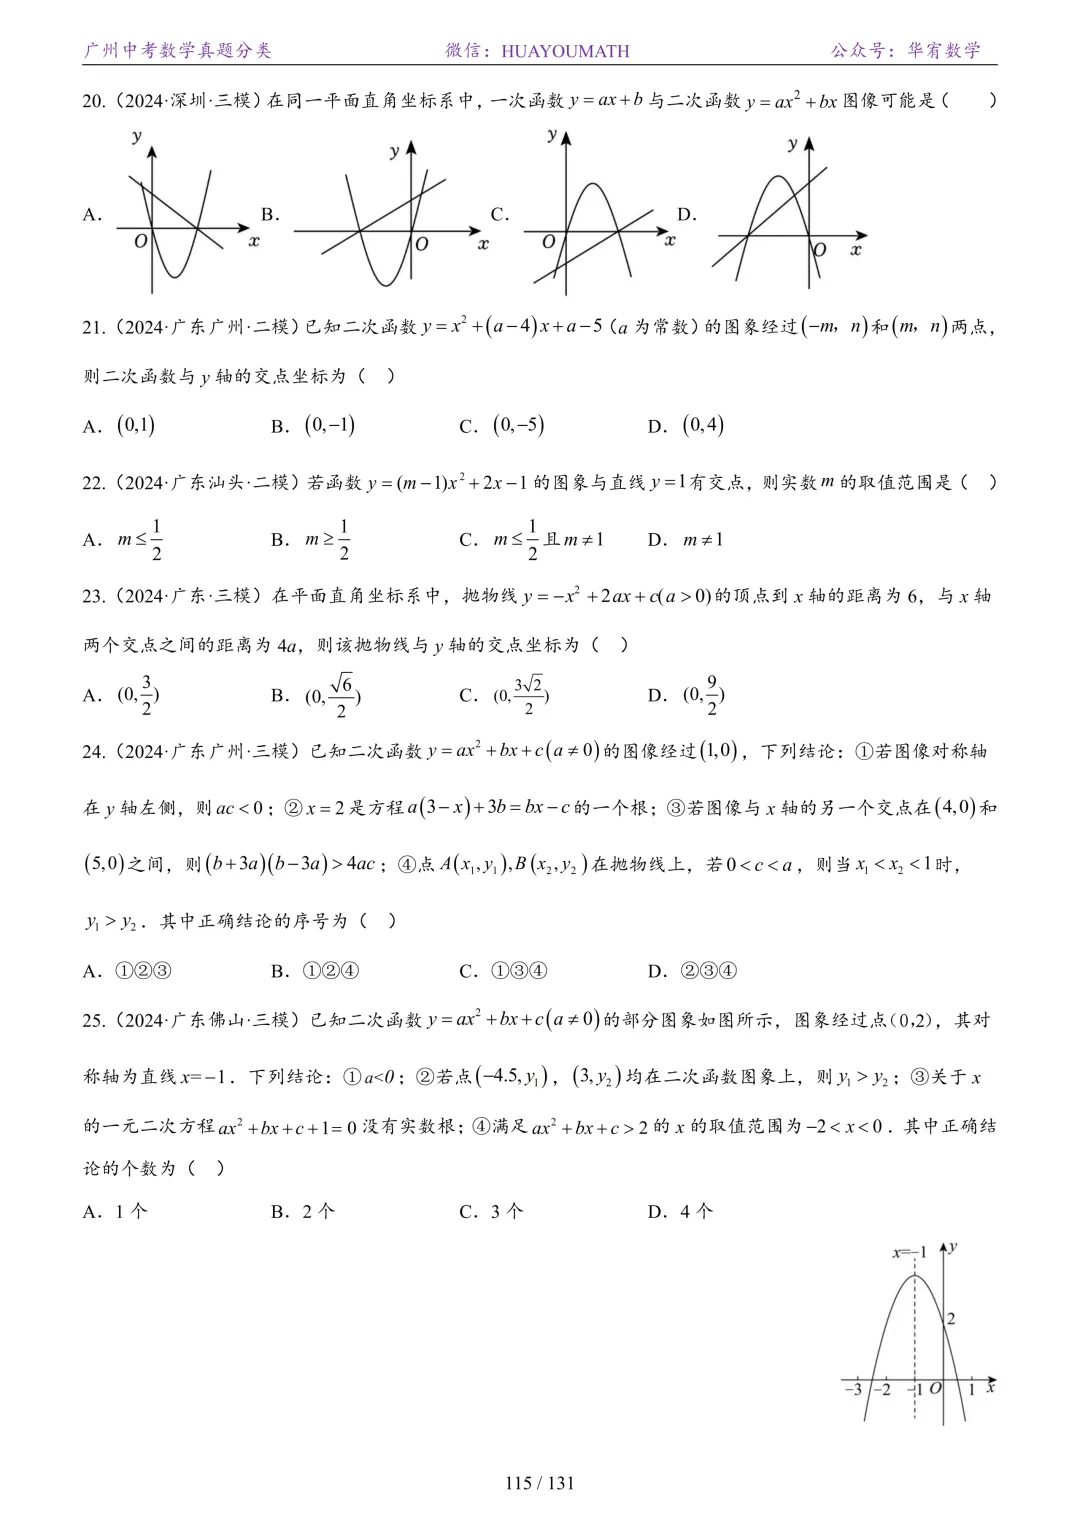 广州中考数学真题分类 微信：HUAYOUMATH 公众号：华宥数学
20.（2024·深圳·三模）在同一平面直角坐标系中，一次函数 y = ax + b 与二次函数 y = ax² + bx 图像可能是（　　）
y y y y
A． B． C． D．
O x O x O x O x
21.（2024·广东广州·二模）已知二次函数 y = x² + (a − 4)x + a − 5（a 为常数）的图象经过 (−m，n) 和 (m，n) 两点，
则二次函数与 y 轴的交点坐标为（　）
A．(0,1) B．(0,−1) C．(0,−5) D．(0,4)
22.（2024·广东汕头·二模）若函数 y = (m − 1)x² + 2x − 1 的图象与直线 y = 1 有交点，则实数 m 的取值范围是（　）
A．m ≤ 1/2 B．m ≥ 1/2 C．m ≤ 1/2 且 m ≠ 1 D．m ≠ 1
23.（2024·广东·三模）在平面直角坐标系中，抛物线 y = −x² + 2ax + c(a > 0) 的顶点到 x 轴的距离为 6，与 x 轴
两个交点之间的距离为 4a，则该抛物线与 y 轴的交点坐标为（　）
A．(0, 3/2) B．(0, √6/2) C．(0, 3√2/2) D．(0, 9/2)
24.（2024·广东广州·三模）已知二次函数 y = ax² + bx + c(a ≠ 0) 的图像经过 (1,0)，下列结论：①若图像对称轴
在 y 轴左侧，则 ac < 0；②x = 2 是方程 a(3 − x) + 3b = bx − c 的一个根；③若图像与 x 轴的另一个交点在 (4,0) 和
(5,0) 之间，则 (b + 3a)(b − 3a) > 4ac；④点 A(x₁, y₁), B(x₂, y₂) 在抛物线上，若 0 < c < a，则当 x₁ < x₂ < 1 时，
y₁ > y₂．其中正确结论的序号为（　）
A．①②③ B．①②④ C．①③④ D．②③④
25.（2024·广东佛山·三模）已知二次函数 y = ax² + bx + c(a ≠ 0) 的部分图象如图所示，图象经过点(0,2)，其对
称轴为直线 x= −1．下列结论：①a<0；②若点 (−4.5, y₁)，(3, y₂) 均在二次函数图象上，则 y₁ > y₂；③关于 x
的一元二次方程 ax² + bx + c + 1= 0 没有实数根；④满足 ax² + bx + c > 2 的 x 的取值范围为 −2 < x < 0．其中正确结
论的个数为（　）
A．1 个 B．2 个 C．3 个 D．4 个
x=−1 y
2
−3 −2 −1 O 1 x
115 / 131